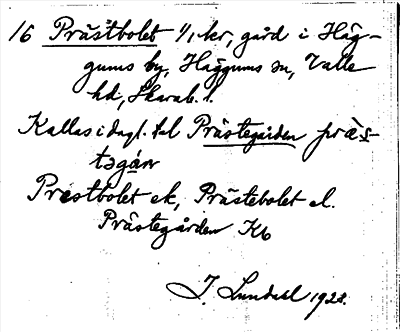 16 Prästbolet 1/1 kr, gård i Häg-
gums by, Häggums sn, Valle
hd, Skarab. l.
Kallas i dagl. tal Prästegården präs-
təgárn
Prestbolet ek, Prästebolet el.
Prästegården Kb
J. Lundahl 1923.